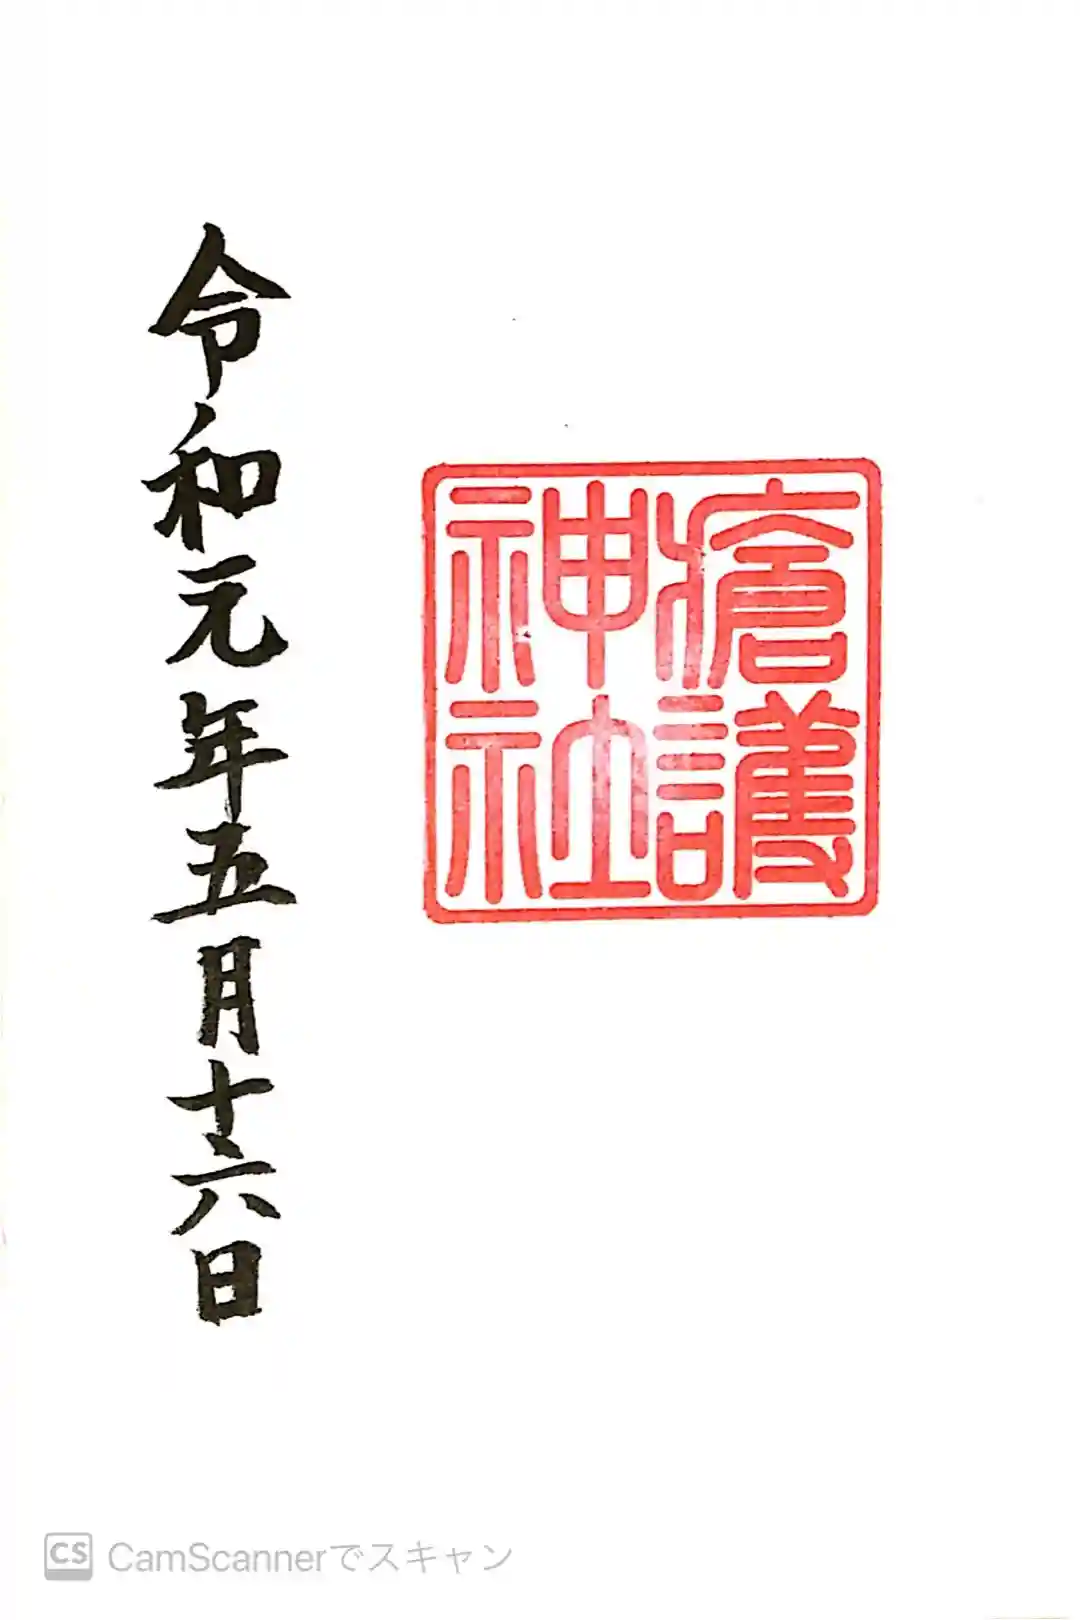 瘡護神社
令和元年五月十六日
CS CamScannerでスキャン